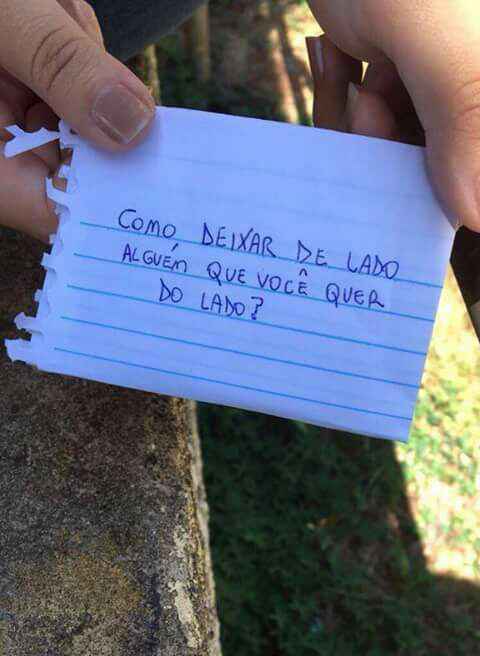 COMO DEIXAR DE LADO
ALGUÉM QUE VOCÊ QUER
DO LADO?